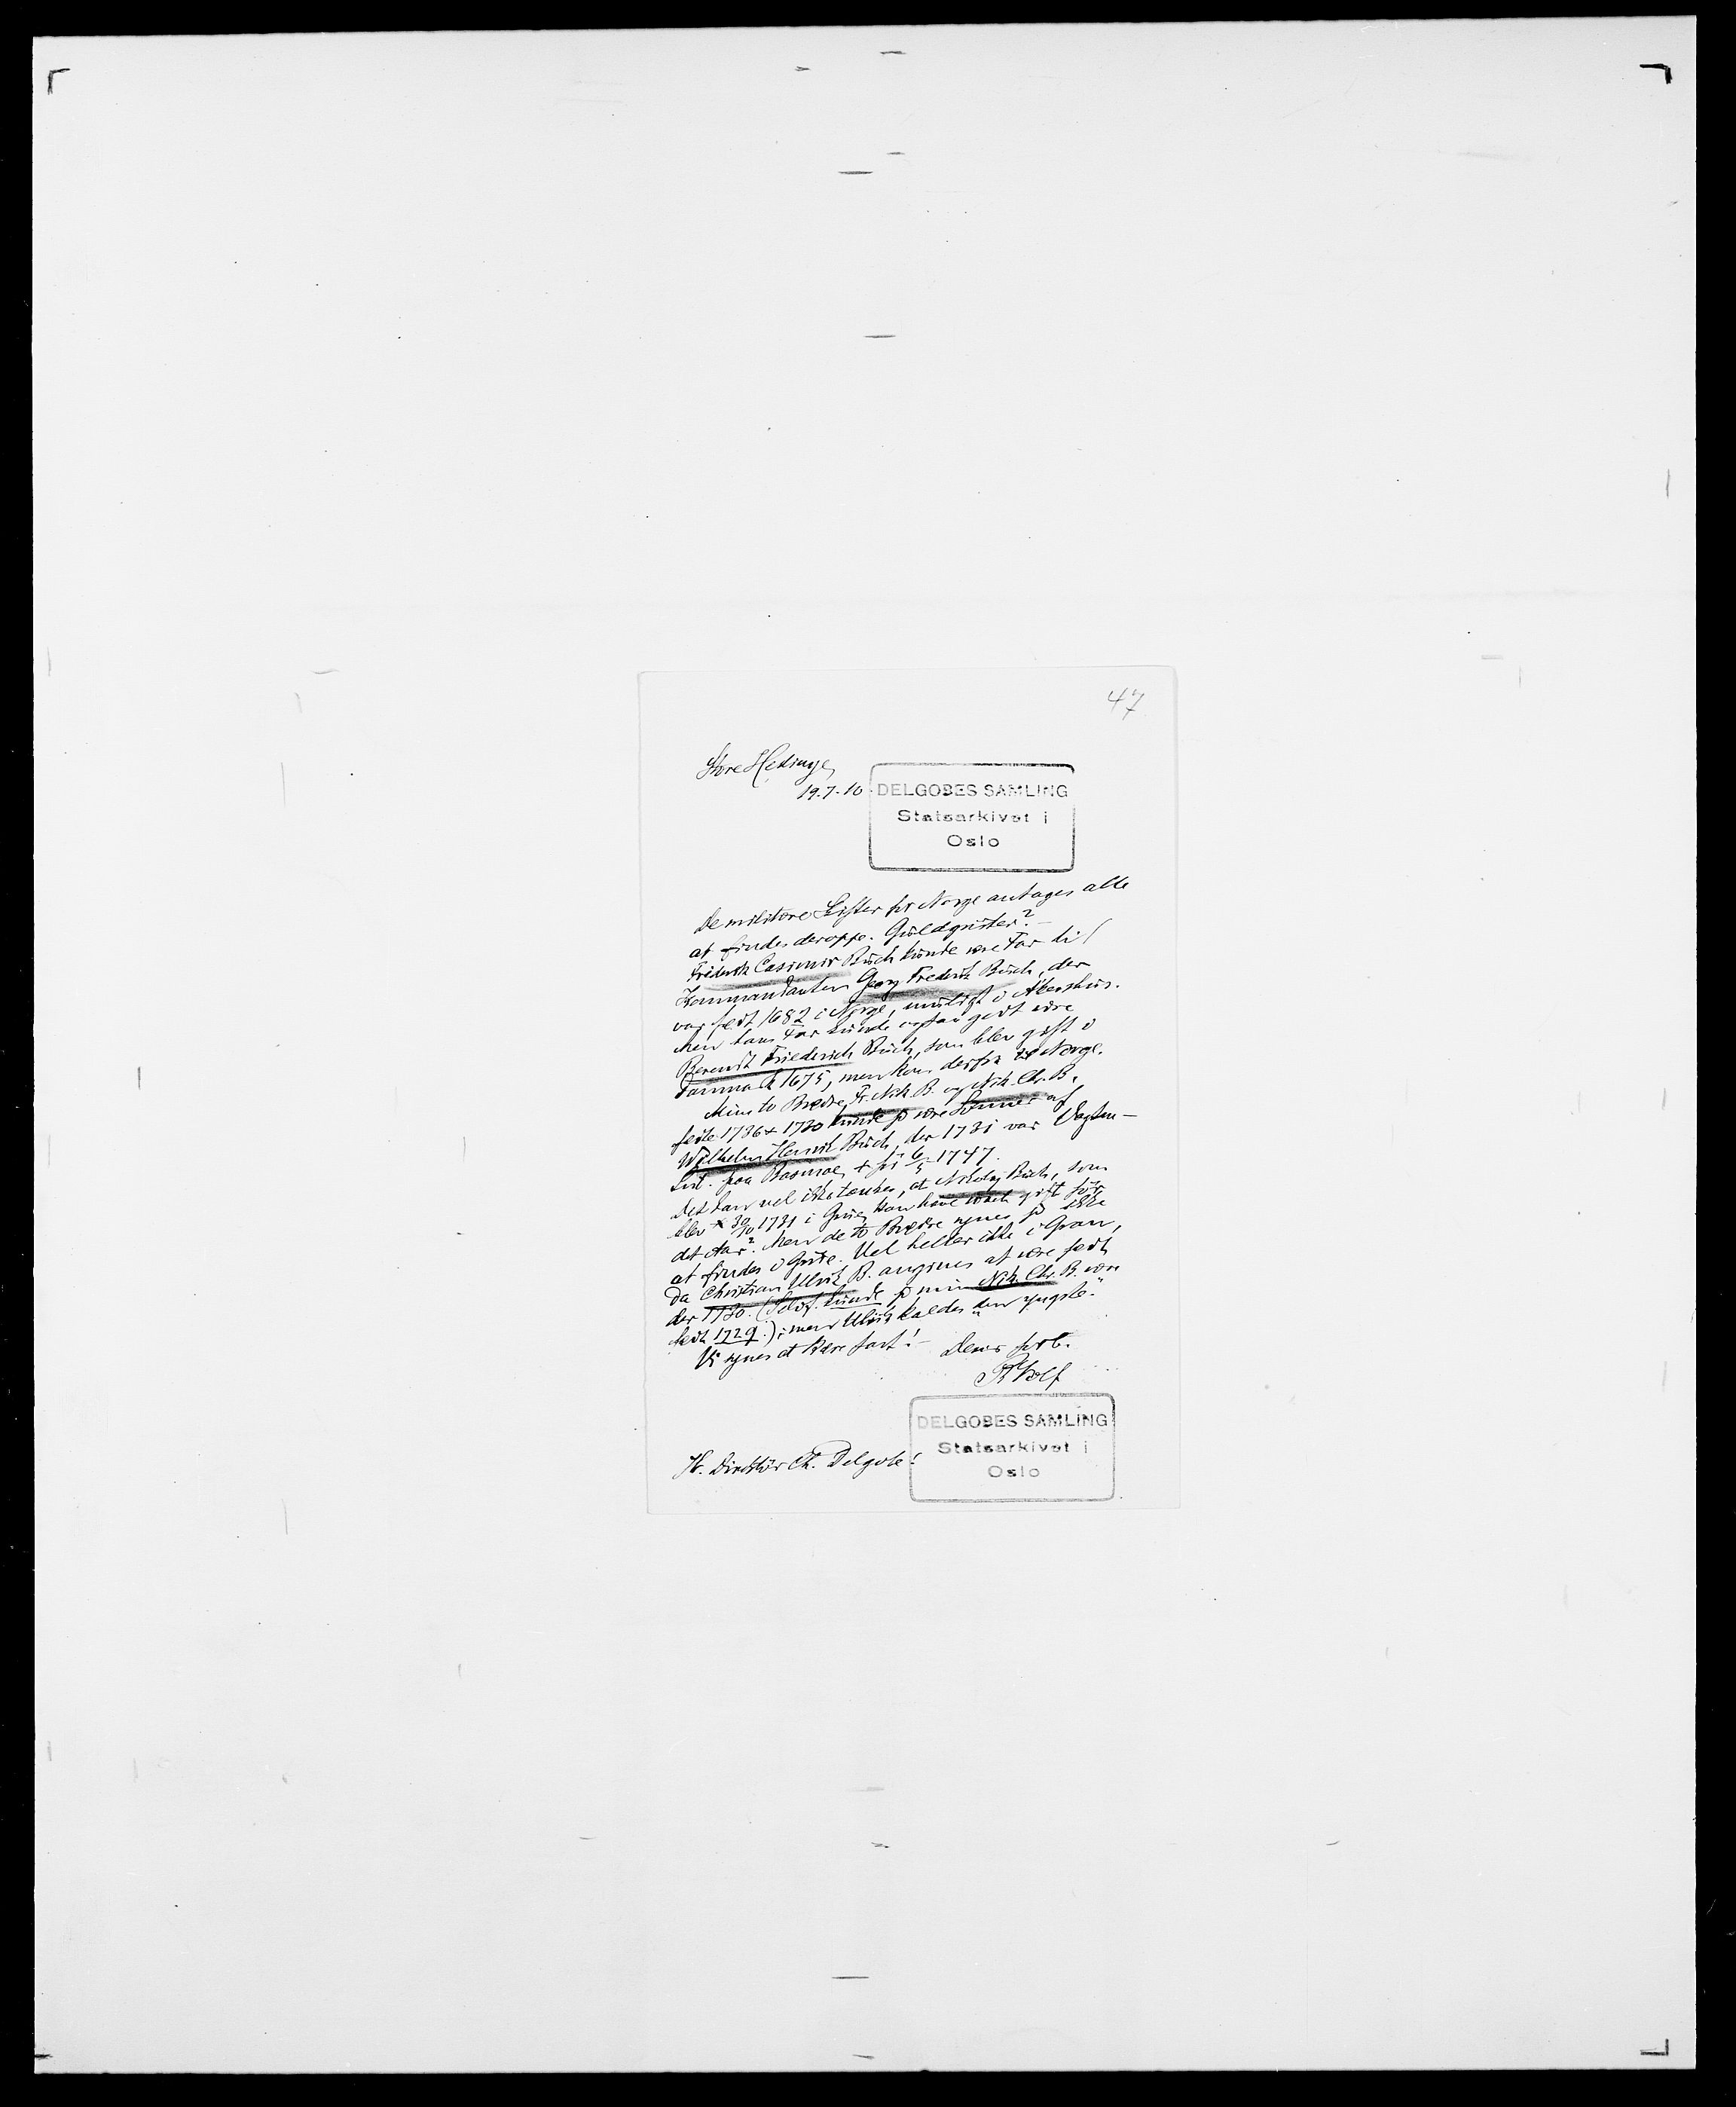 47
Store Heddinge,
19.7.10.
DELGOBES SAMLING
Statsarkivet i
Oslo
De militære Lister for Norge antages alle
at findes deroppe. Guldgruber? -
Friderich Casimir Büch kunde være Far til
Kommandanten Georg Frederik Büch, der
var født 1682 i Norge, muligt i Akershus.
Men hans Far kunde ogsaa godt være
Berendt Friederich Büch, som blev gift i
Danmark 1675, men kom derfra til Norge.
Mine to Brødre, Fr. Nik. B. og Nik. Chr. B.,
fødte 1726 & 1730 kunde jo være Sønner af
Wilhelm Henrik Büch, der 1731 var
Lint. paa Basmoe, + før 6/5 1747.
Det kan vel ikke tænkes, at Nikolaj Büch, som
blev * 30/10 1731 i Grue, kan have været gift før
det Aar? Men de to Brødre synes jo ikke
at findes i Grue. Vel heller ikke i Gran,
da Christian Ulrik B. angives at være født
der 1730. (Selvf. kunde jo min Nik. Chr. B. være
født 1729.); men Ulrik kaldes "den yngste."
Vi synes at være fast! - Deres forb.
DELGOBES SAMLING
Statsarkivet i
Oslo
Hr. Direktør Ch. Delgobe!